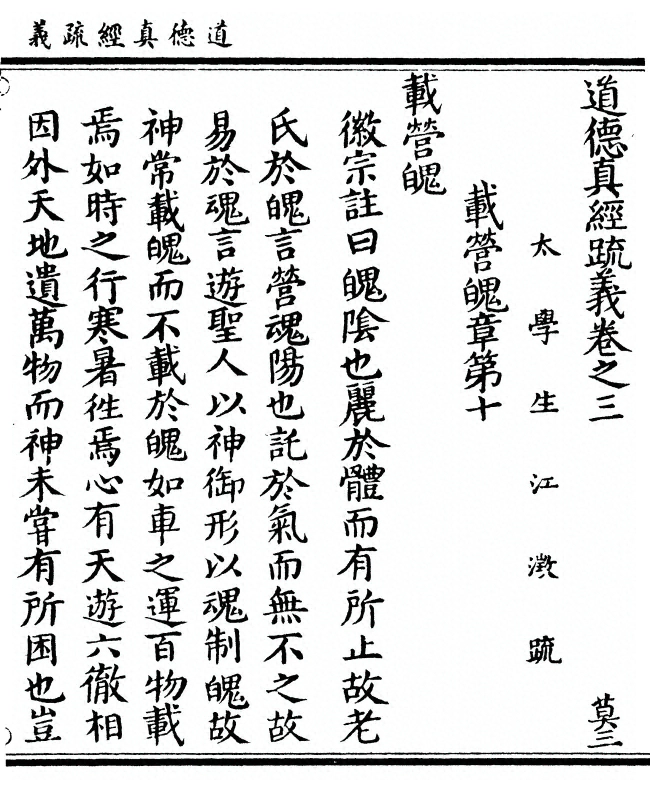 道德真經疏義
道德真經疏義卷之三
莫三
太學生江澂疏
載營魄章第十
載營魄
徽宗註曰魄陰也麗於體而有所止故老
氏於魄言營魂陽也託於氣而無不之故
易於魂言遊聖人以神御形以魂制魄故
神常載魄而不載於魄如車之運百物載
焉如時之行寒暑徃焉心有天遊六徹相
因外天地遺萬物而神未嘗有所困也豈